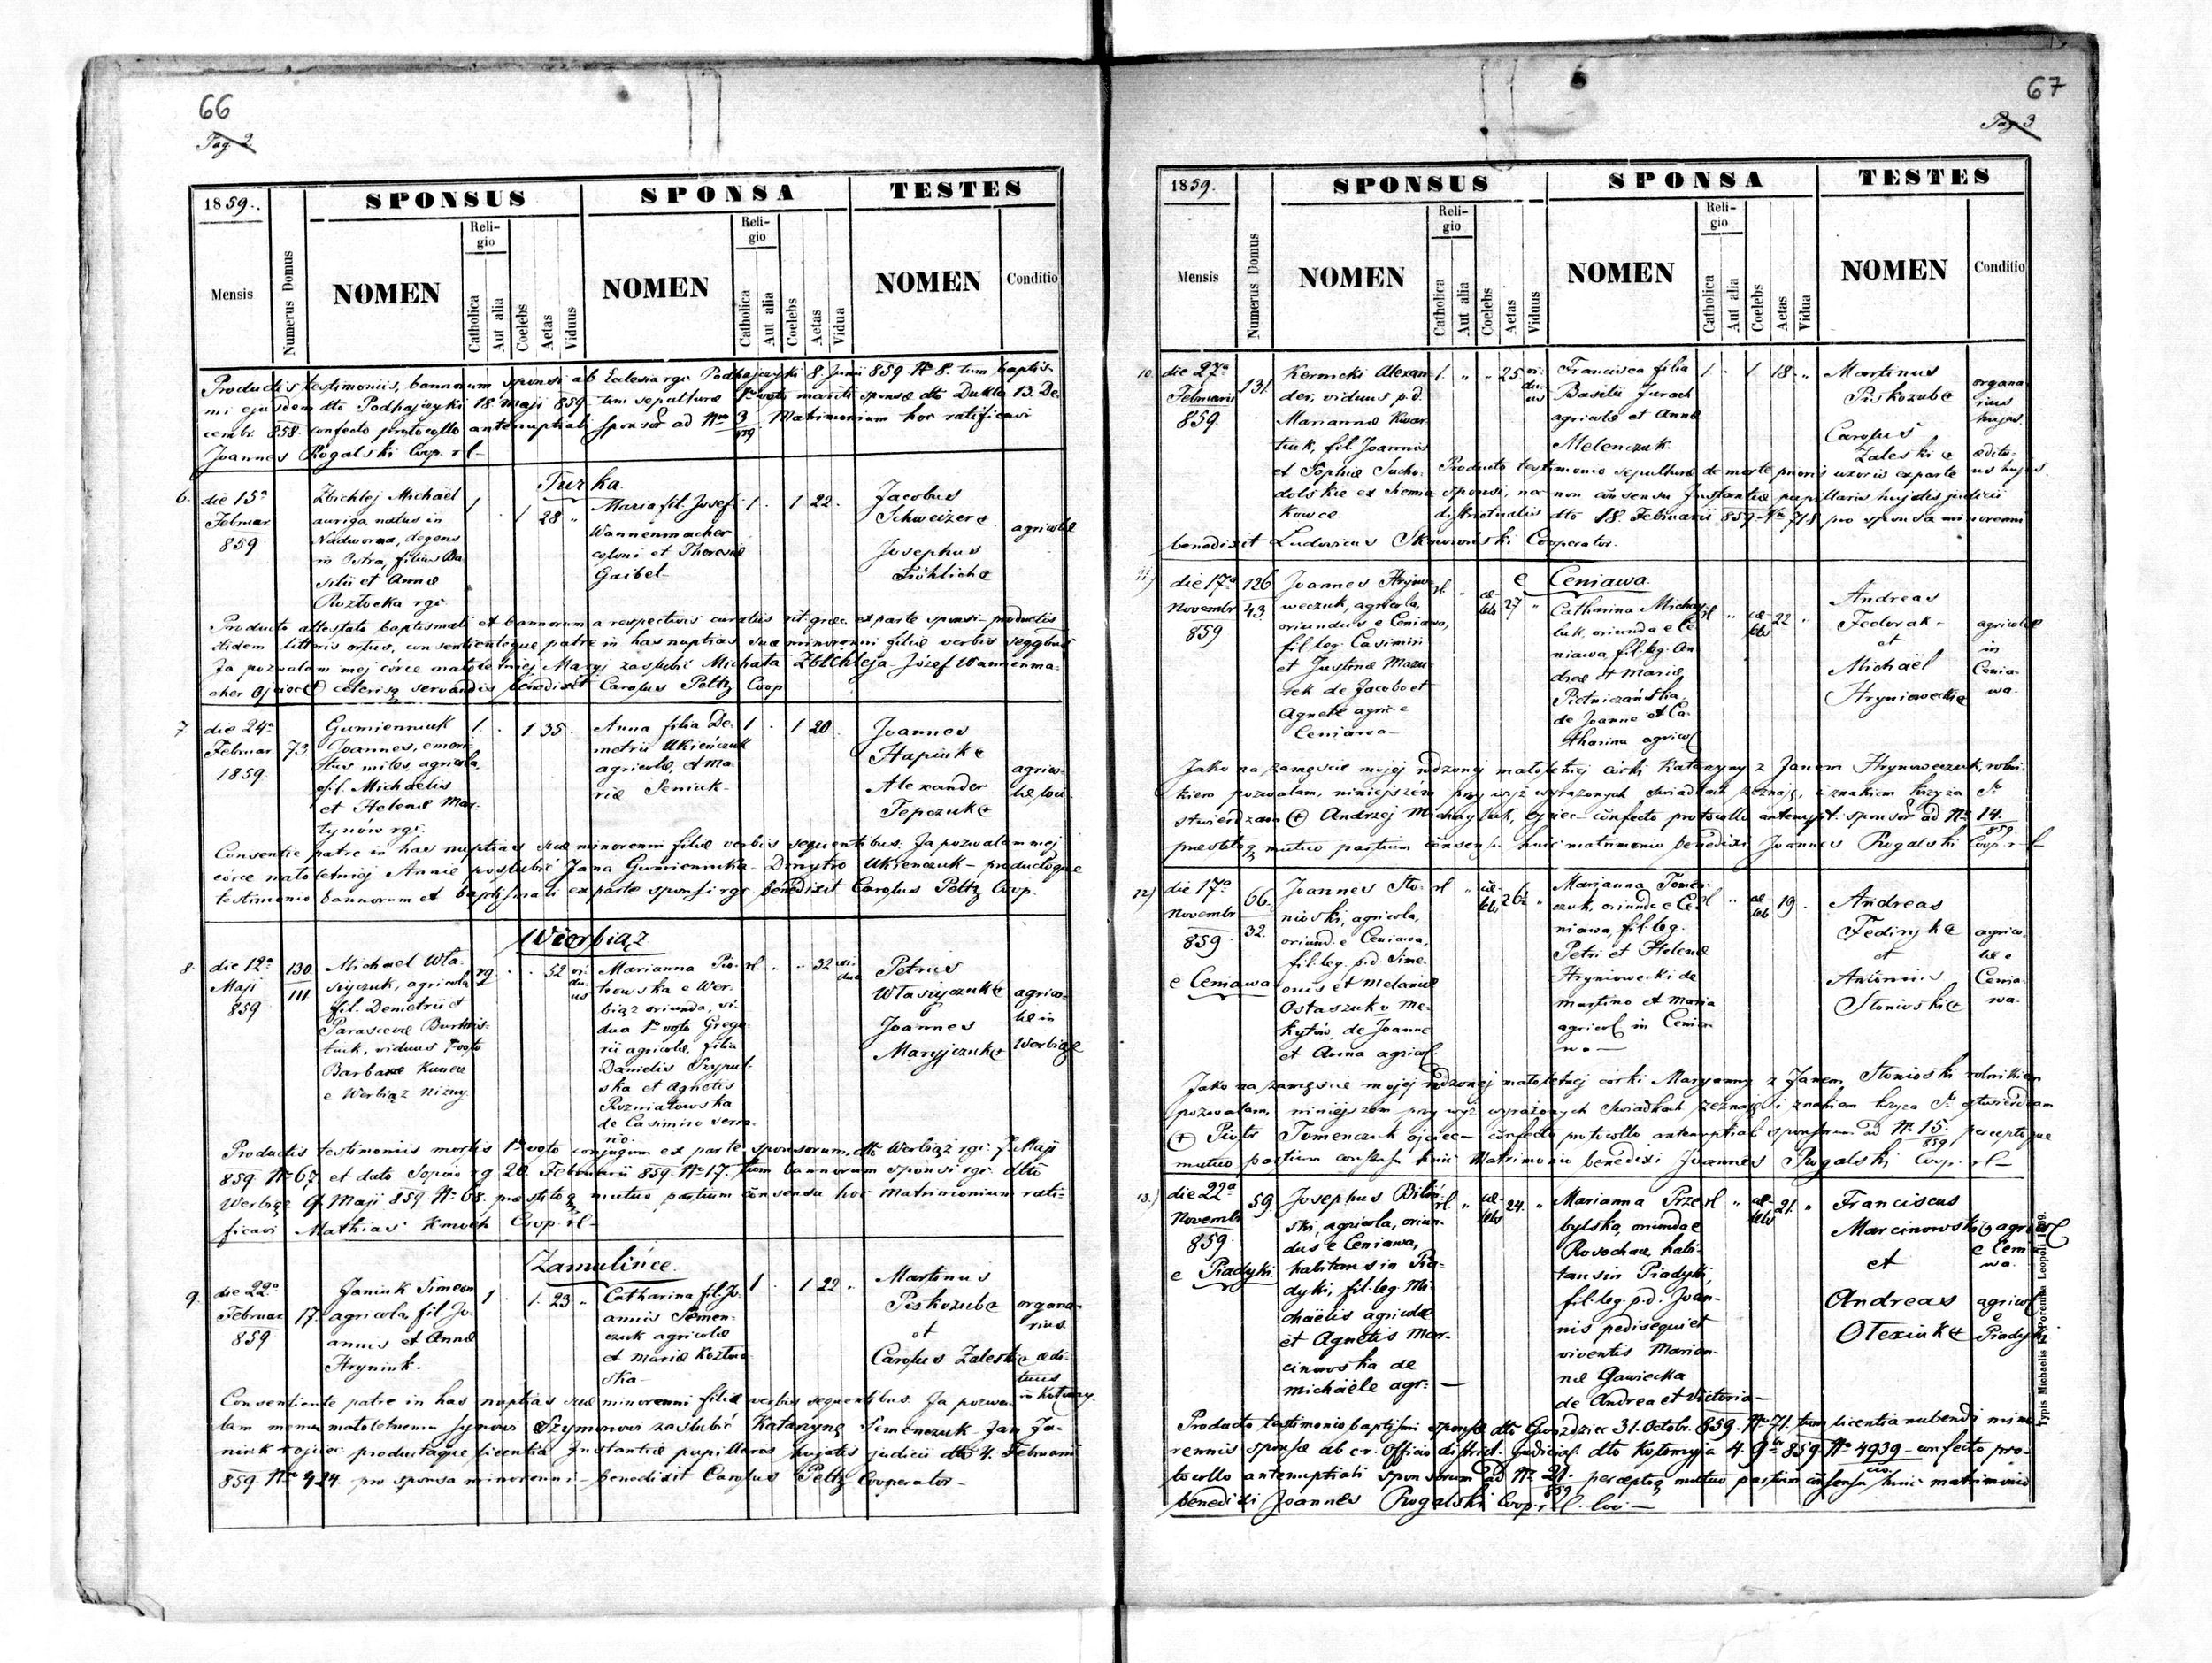 66
Pag. 2
1859.
SPONSUS
SPONSA
TESTES
Mensis
Numerus Domus
NOMEN
Religio
Catholica
Aut alia
Coelebs
Aetas
Viduus
NOMEN
Religio
Catholica
Aut alia
Coelebs
Aetas
Vidua
NOMEN
Conditio
Productis testimoniis, bannorum sponsi ab Eclesia rgr. Podhajczyki 8. Junii 859 Nr 8. tum baptis-
mi ejusdem dto Podhajczyki 18 Maji 859 tum sepulturæ 1mo voto mariti sponsæ dto Dukla 13. De-
cembr. 858. confecto protocollo antenuptiali sponsor. ad Nrum 3/859 Matrimonium hoc ratificavi
Joannes Rogalski Coop. rl
Turka.
6. die 15a
Februar
859
Zbichlej Michaël
auriga, natus in
Nadworna, degens
in Ostra, filius Ba-
silii et Annæ
Roztocka rgr.
1 . 1 28 "
Maria fil. Josefi
Wannenmacher
coloni et Theresiæ
Gaibel
1 . 1 22 .
Jacobus
Schweizer
Josephus
Fröhlich
agricolæ
Producto attestato baptismali et bannorum a respectivis curatus rit. græc. ex parte sponsi productis
itidem litteris ortus, consentienteque patre in has nuptias suæ minorenni filiæ verbis seqqbus
Ja pozwalam mej córce małoletniej Maryi zaslubić Michała Zbichleja Józef Wannenma-
cher Ojciec ceterisq servandis benedixit Carolus Peltz Coop
7. die 24a
Februar
1859.
73
Gumienniuk
Joannes, emeri-
tus miles, agricola,
fil. Michaelis
et Helenæ Mar-
tynów rgr.
1 . . 1 35 .
Anna filia De-
metrii Ukieńczuk
agricolæ, et Ma-
riæ Seniuk
1 . 1 20
Joannes
Hapiuk
Alexander
Tepczuk
agrico-
læ
Consentie patre in has nuptias suæ minorenni filiæ verbis sequentibus: Ja pozwalam mej
córce małoletniej Annie poslubić Jana Gumieniuka Dmytro Ukienczuk productoque
testimonio bannorum et baptismali ex parte sponsi rgr. benedixit Carolus Peltz Coop.
Wierbiąz
8. die 12a
Maji
859
130
111
Michael Wła-
sijczuk, agricola
fil. Demetrii et
Parascevæ Burkis-
tiuk, viduus 1 voto
Barbaræ Kunca
e Werbiąż niżny.
rg . . 52 vi-
du-
us
Marianna Pio-
trowska e Wer-
biąż oriunda, vi-
dua 1mo voto Grego-
rii agricolæ, filia
Danielis Szypul-
ska et Agnetis
Rozniatowska
de Casimiro
rl. . . 32 vi-
dua
Petrus
Własijczuk
Joannes
Maryjczuk
agrico-
læ in
Werbiąż
Productis testimoniis mortis 1mo voto conjugum ex parte sponsorum, dto Werbiąż rgr. 7 Maji
859 Nr 67 et dato Sopów rg. 20. Februarii 859. Nr 17. tum bannorum sponsi rgr. dto
Werbiąż 9 Maji 859 Nr 68. præstitoq mutuo partium consensu hoc Matrimonium rati-
ficavi Mathias Kmoch Coop. rl
Zamulińce.
9. die 22a
Februar
859
17.
Janiuk Simeon
agricola, fil. Jo-
annis et Annæ
Hryniuk.
1 . 1. 23 "
Catharina fil. Jo-
annis Semen-
czuk agricolæ
et Mariæ Kozłow-
ska
1 . 1 22 .
Martinus
Piskozub
et
Carolus Zaleski
organa-
rius
ædi-
tuus
in Kołomy.
Consentiente patre in has nuptias suæ minorenni filiæ verbis sequentibus: Ja pozwa-
lam memu małoletnemu synowi Szymonowi zaslubić Katarzynę Semenczuk Jan Ja-
niuk ojciec productaque licentia Instantiæ pupillaris hujatis judicii dto 4. Februarii
859. Nr 424. pro sponsa minorenni benedixit Carolus Peltz Cooperator
67
Pag. 3
1859.
SPONSUS
SPONSA
TESTES
Mensis
Numerus Domus
NOMEN
Religio
Catholica
Aut alia
Coelebs
Aetas
Viduus
NOMEN
Religio
Catholica
Aut alia
Coelebs
Aetas
Vidua
NOMEN
Conditio
10. die 27a
Februarii
859.
131.
Kernicki Alexan-
der, viduus p.d.
Mariannæ Kwar-
tiuk, fil. Joannis
et Sophiæ Sucho-
dolskie ex Siemia-
kowce.
1. " " 25 vi-
du-
us
Francisca filia
Basilii Jurach
agricolæ et Annæ
Melenczuk.
1 . 1 18. "
Martinus
Piskozub
Carolus
Zaleski
organa-
rius
hujas.
ædituus
hujas.
Producto testimonio sepulturæ de morte prioris uxoris ex parte
sponsi, nec non consensu Instantiæ pupillaris hujatis judicii
districtualis dto 18. Februarii 859 Nr 718 pro sponsa minorenni
benedixit Ludovicus Skowroński Cooperator.
e Ceniawa.
11) die 17a
Novembr
859
126
43.
Joannes Hryno-
weczuk, agricola,
oriundus e Ceniawa,
fil. leg. Casimiri
et Justinæ Mazu-
rek de Jacobo et
Agnete agric e
Ceniawa
rl. " cæ-
lebs 27 "
Catharina Michay-
luk, oriunda e Ce-
niawa, fil. leg. An-
dreæ et Mariæ
Pietniczańska,
de Joanne et Ca-
tharina agricol
rl " cæ-
lebs 22 "
Andreas
Fedorak
et
Michaël
Hryniowecki
agricolæ
in
Cenia-
wa.
Jako na zamęscie mojej rodzonej małoletnej córki Katarzyny z Janem Hrynoweczuk, rolni-
kiem pozwalam, niniejszém przy wyż wyrażonych swiadkach zeznaję, i znakiem krzyża Sº
stwierdzam Andrzej Michayluk, ojciec confecto protocollo antenupt. sponsor. ad Nr 14./859.
præstitoq mutuo partium consensu huic matrimonio benedixi Joannes Rogalski Coop. r l
12) die 17a
Novembr
859
e Ceniawa
66.
32.
Joannes Sło-
nioski, agricola,
oriund. e Ceniawa,
fil. leg. p.d. Sime-
onis et Melaniæ
Ostaszuk v. Me-
kytów, de Joanne
et Anna agricol.
rl " cæ-
lebs 26 "
Marjanna Tomen-
czuk, oriunda e Ce-
niawa, fil. leg.
Petri et Helenæ
Hryniowecki de
Martino et Maria
agricol in Cenia-
wa
rl " cæ-
leb 19.
Andreas
Fedinyk
et
Antonius
Słonioski
agrico-
læ e
Cenia-
wa.
Jako na zamęscie mojej rodzonej małoletnej córki Maryanny z Janem Słonioski rolnikiem
pozwalam, niniejszem przy wyż wyrażonych swiadkach zeznaję i znakiem krzyża Sº stwierdzam
Piotr Tomenczuk ojciec confecto protocollo antenuptiali sponsorum ad Nr 15./859 perceptoque
mutuo partium consensu huic Matrimonio benedixi Joannes Rogalski Coop. rl
13.) die 22a
Novembr
859
e Piadyki.
59.
Josephus Biliń-
ski, agricola, oriun-
dus e Ceniawa,
habitans in Pia-
dyki, fil. leg. Mi-
chaëlis agricolæ
et Agnetis Mar-
cinowska de
Michaële agr:
rl. " cæ-
lebs 24. "
Marianna Prze-
bylska, oriunda e
Rosochacz, habi-
tans in Piadyki,
fil. leg. p.d. Joan-
nis pedisequi et
viventis Marian-
næ Gawiecka
de Andrea et Victoria
rl " cæ-
lebs 21. "
Franciscus
Marcinowski
et
Andreas
Olexiuk
agricol
e Cenia-
wa.
agricol
e
Piadyki
Producto testimonio baptismi sponsæ dto Gwozdziec 31. Octobr. 859. Nr 71. tum licentia nubendi mino-
rennis sponsæ ab c. r. Officio district. judicial. dto Kołomyja 4. 9br 859 Nr 4939 confecto pro-
tocollo antenuptiali sponsorum ad Nr 21./859 perceptoq mutuo partium consensu huic matrimonio
benedixi Joannes Rogalski Coop. r. l. loci
Typis Michaelis F. Poremba Leopoli 1809.